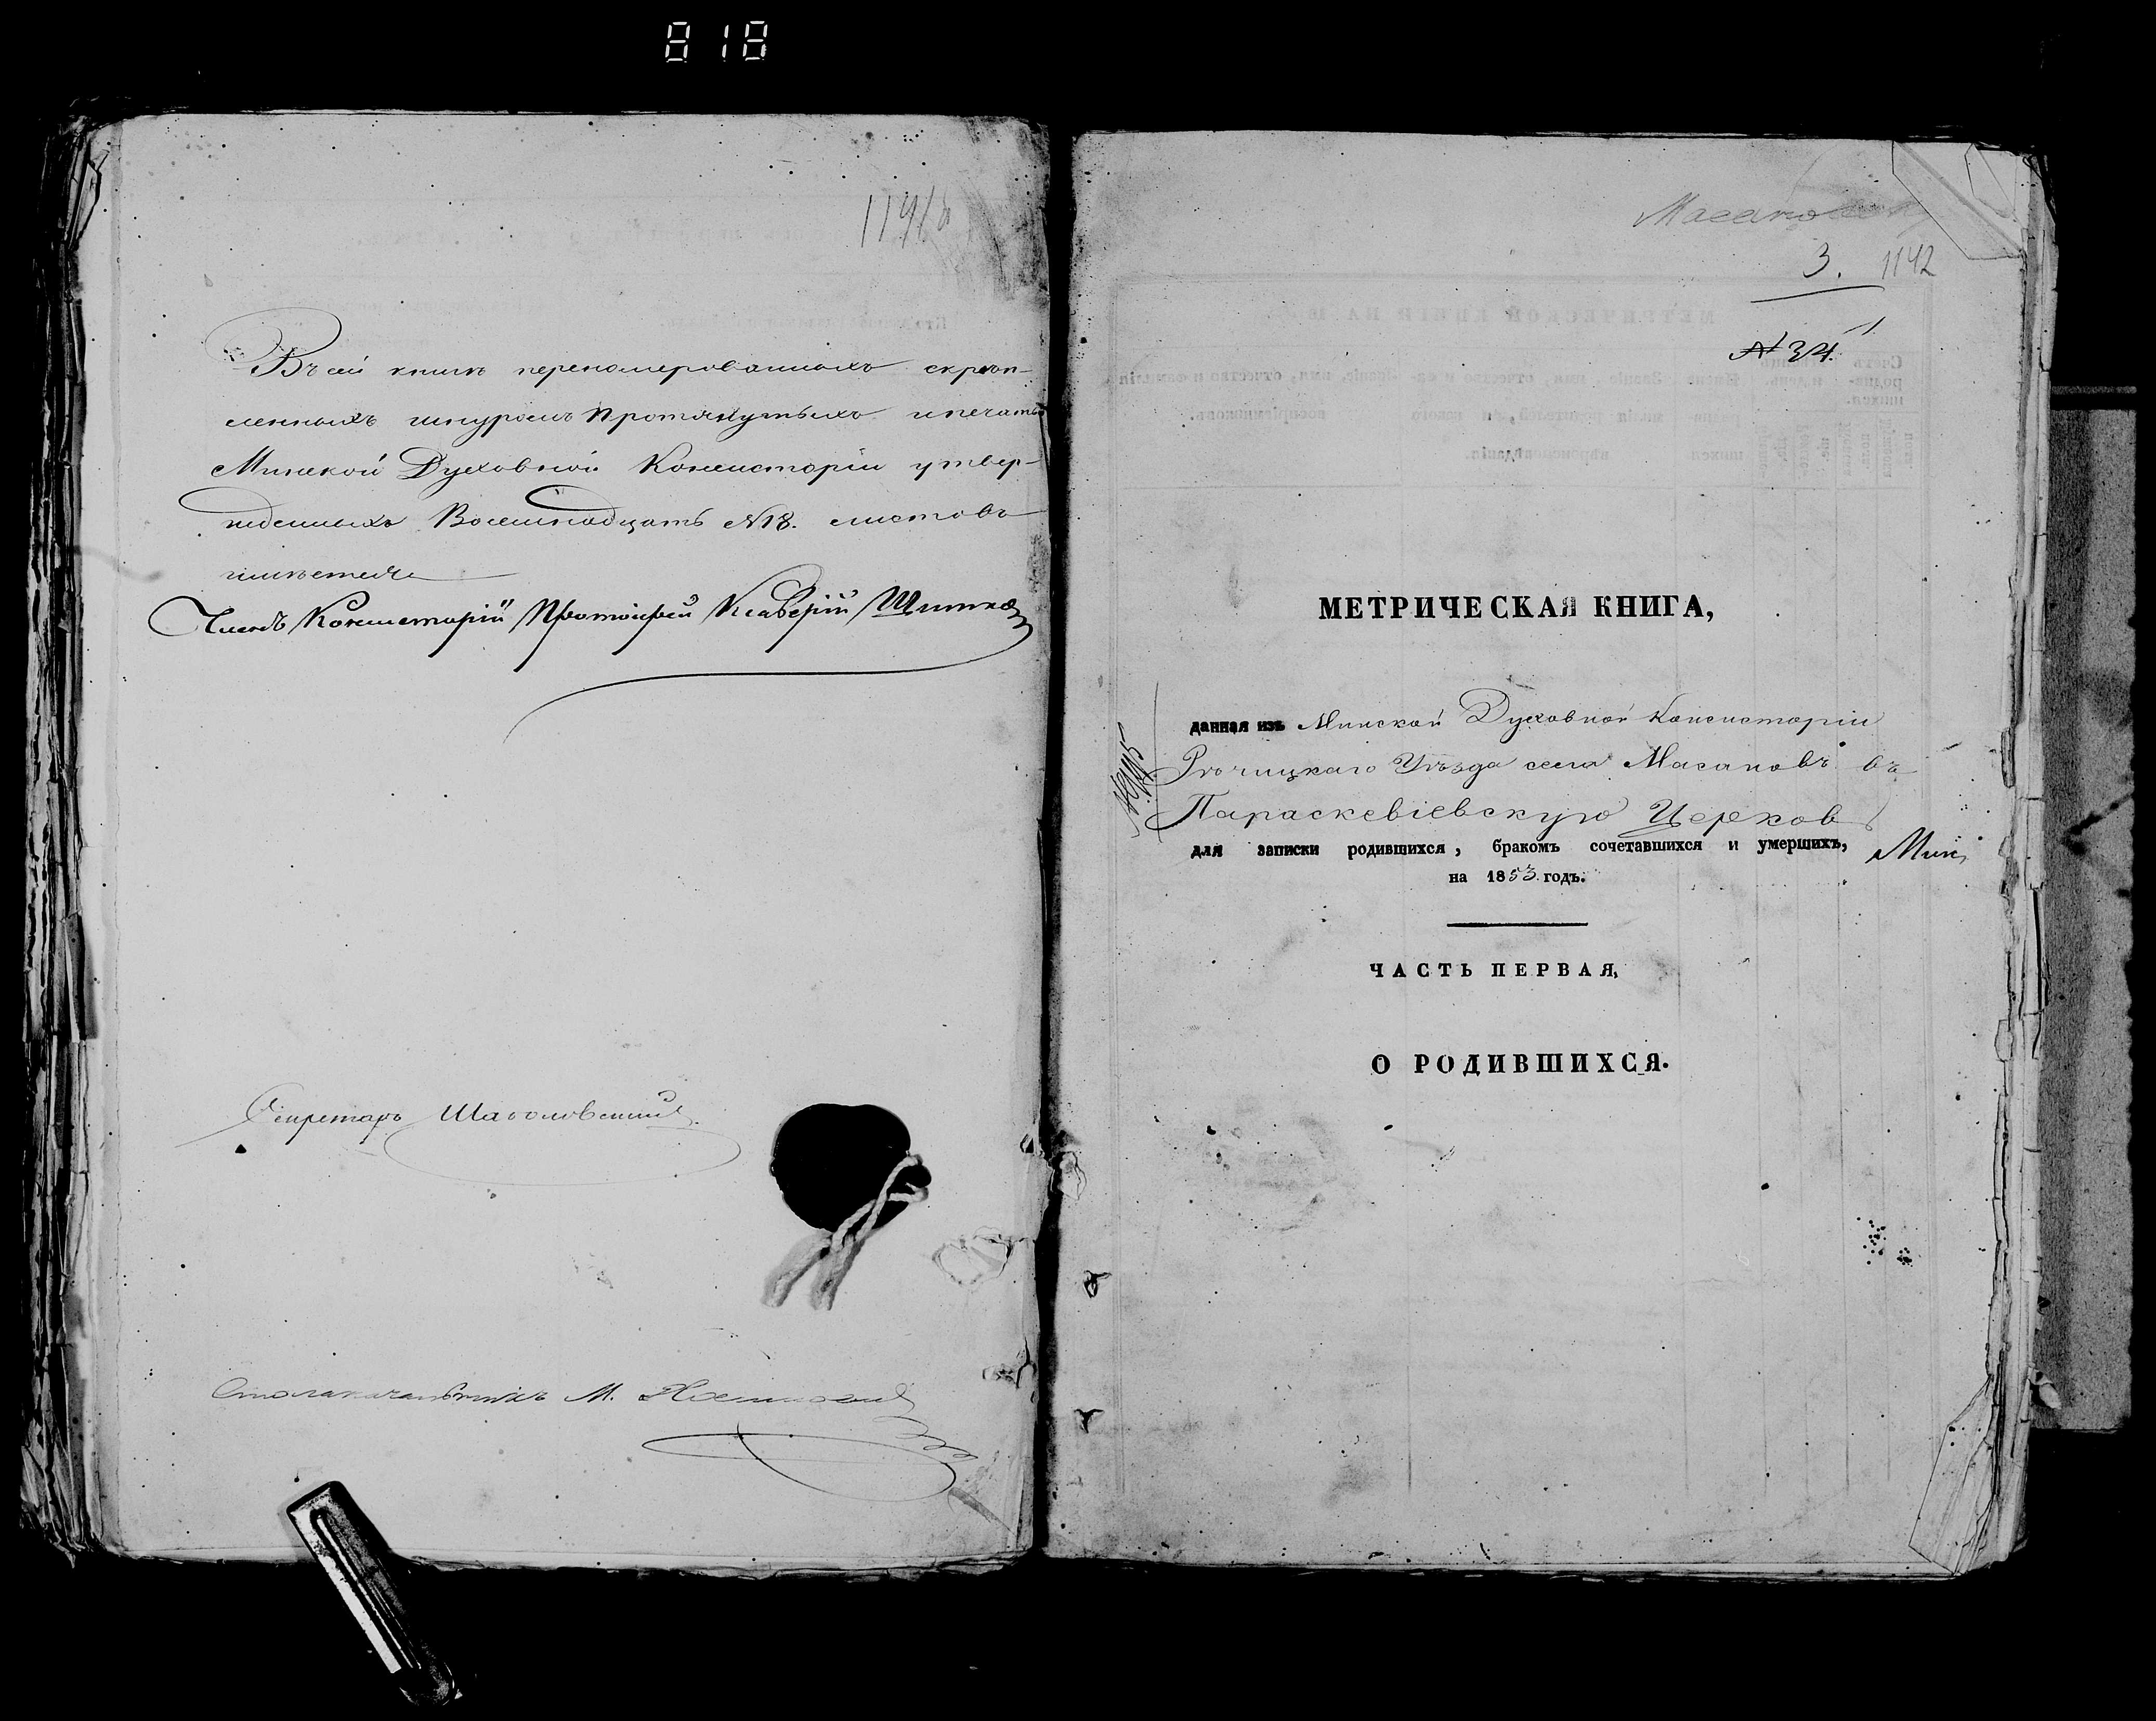 818
Въ сей книгѣ перенумерованныхъ скрѣп-
ленныхъ шнуромъ протянутыхъ и печатью
Минской Духовной Консисторіи утвер-
жденныхъ Восемнадцать N18. листовъ
имѣется
Членъ Консисторіи Протоіерей Ксаверій
Секретарь
Столоначальникъ М.
3. 1142
N 34.
МЕТРИЧЕСКАЯ КНИГА,
данная изъ Минской Духовной Консисторіи
Рѣчицкаго Уѣзда села Масановъ въ
Параскевіевскую Церковь
для записки родившихся, бракомъ сочетавшихся и умершихъ,
на 1853. годъ.
ЧАСТЬ ПЕРВАЯ,
О РОДИВШИХСЯ.